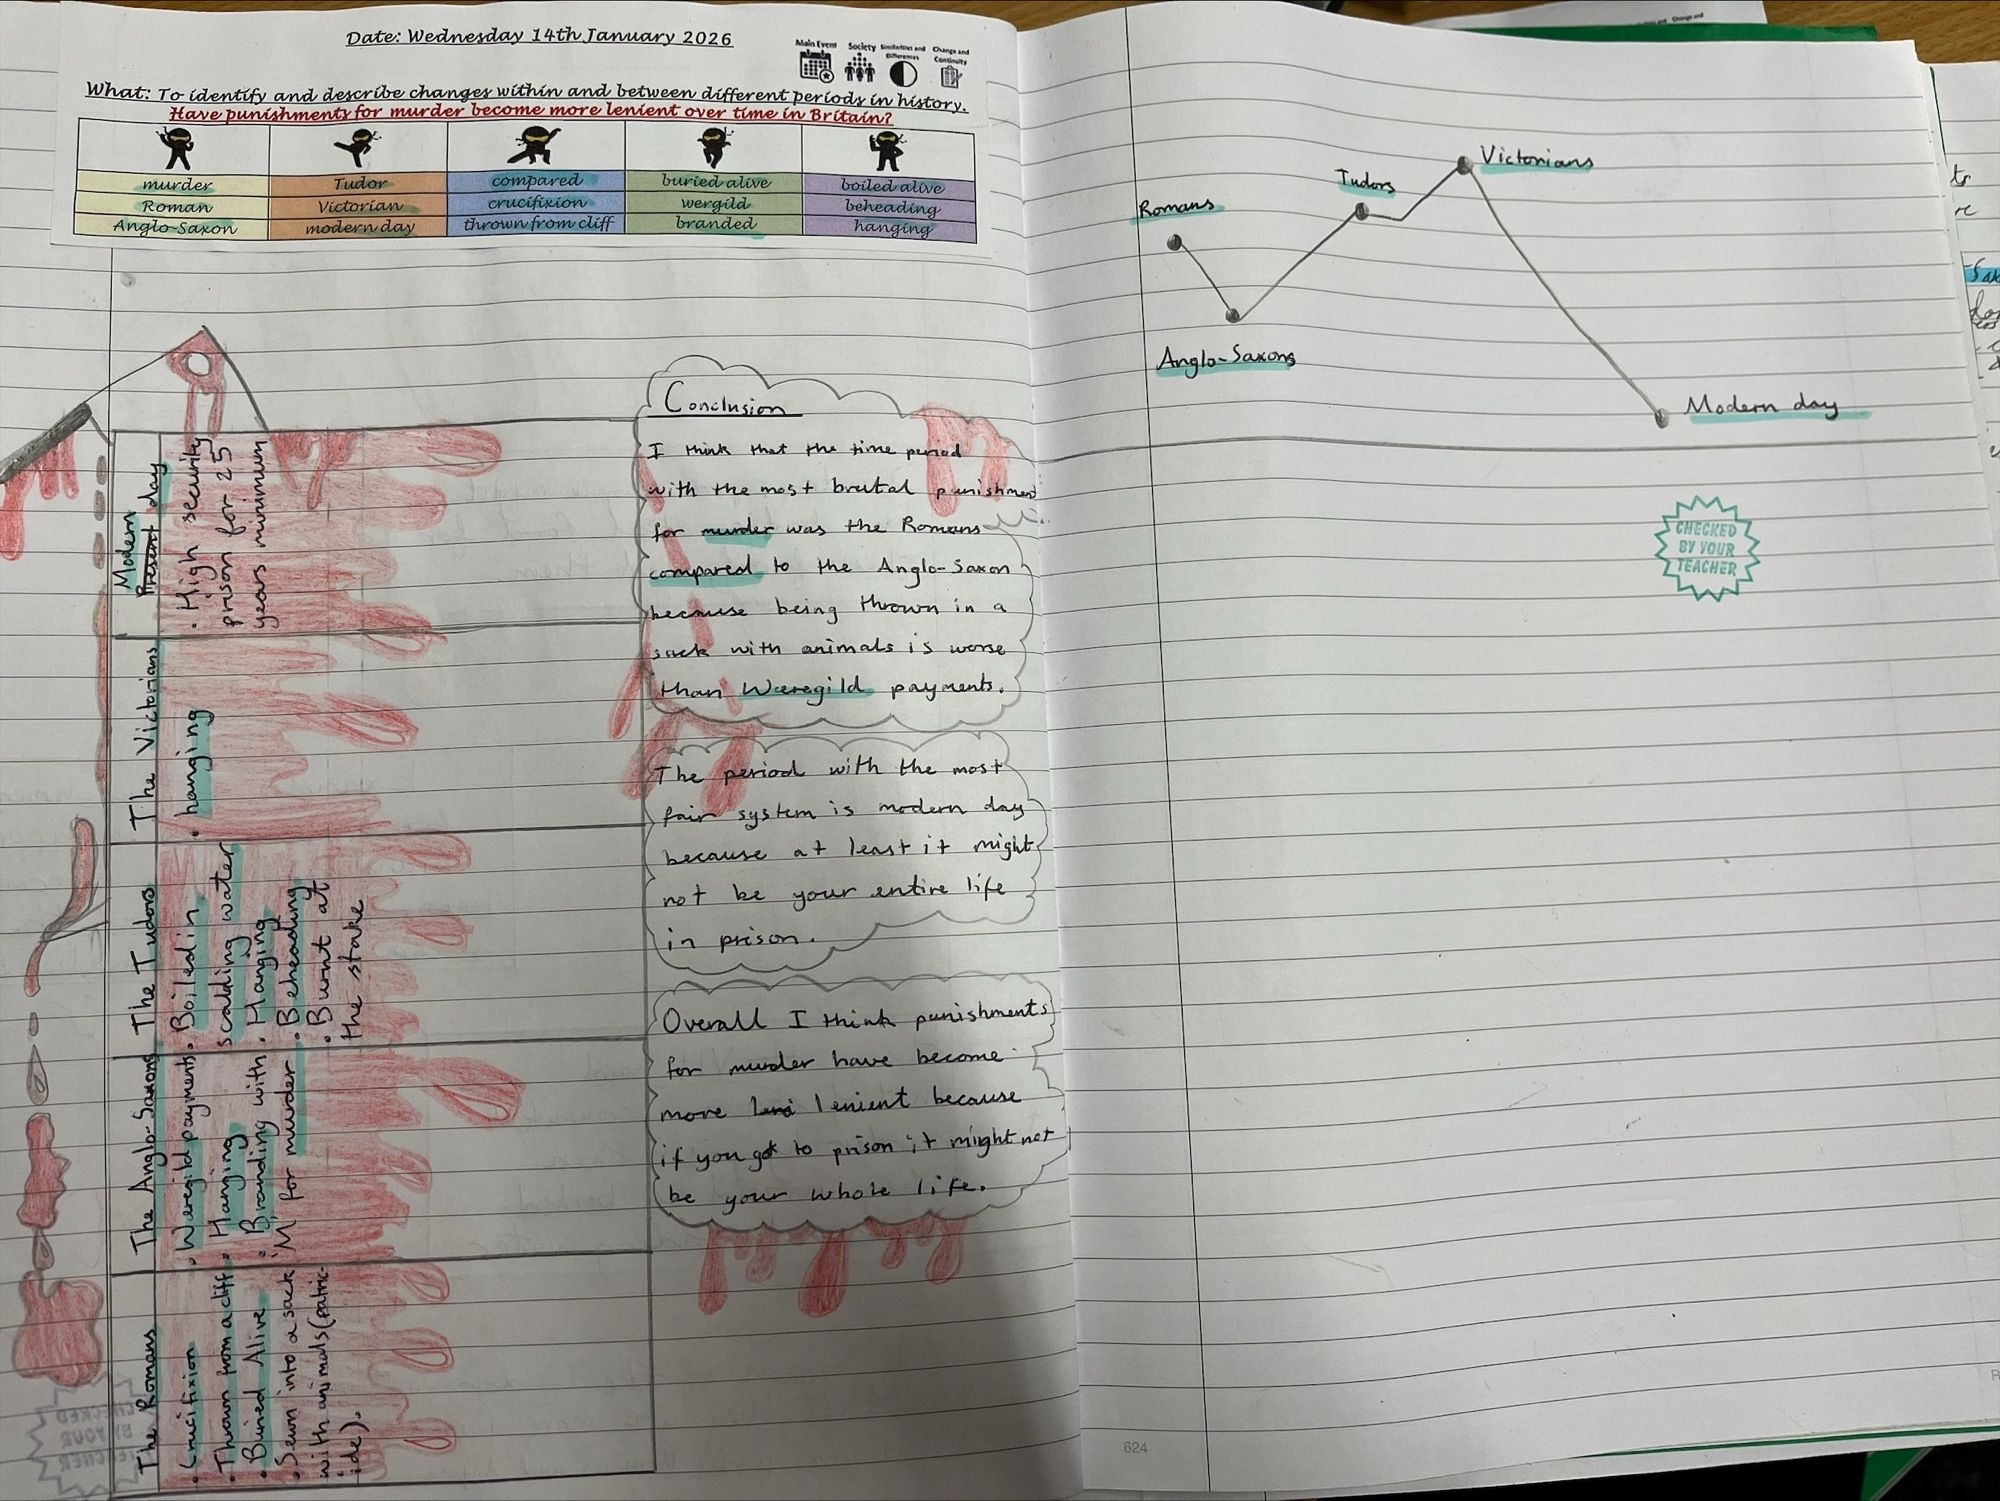 Date: Wednesday 14th January 2026
Main Event
Society
Similarities and Differences
Change and Continuity
What: To identify and describe changes within and between different periods in history.
Have punishments for murder become more lenient over time in Britain?
murder Tudor compared buried alive boiled alive
Roman Victorian crucifixion wergild beheading
Anglo-Saxon modern day thrown from cliff branded hanging
Modern
Present day
• High security
prison for 25
years minimum
The Victorians
• hanging
The Tudors
• Boiled in
scalding water
• Hanging
• Beheading
• Burnt at
the stake
The Anglo-Saxons
• Weregild payments
• Hanging
• Branding with
'M' for murder
The Romans
• Crucifixion
• Thrown from a cliff
• Buried Alive
• Sewn into a sack
with animals (patric-
ide).
Conclusion
I think that the time period
with the most brutal punishment
for murder was the Romans
compared to the Anglo-Saxon
because being thrown in a
sack with animals is worse
than Weregild payments.
The period with the most
fair system is modern day
because at least it might
not be your entire life
in prison.
Overall I think punishments
for murder have become
more leni lenient because
if you got to prison it might not
be your whole life.
CHECKED
BY YOUR
TEACHER
Romans
Anglo-Saxons
Tudors
Victorians
Modern day
CHECKED
BY YOUR
TEACHER
624